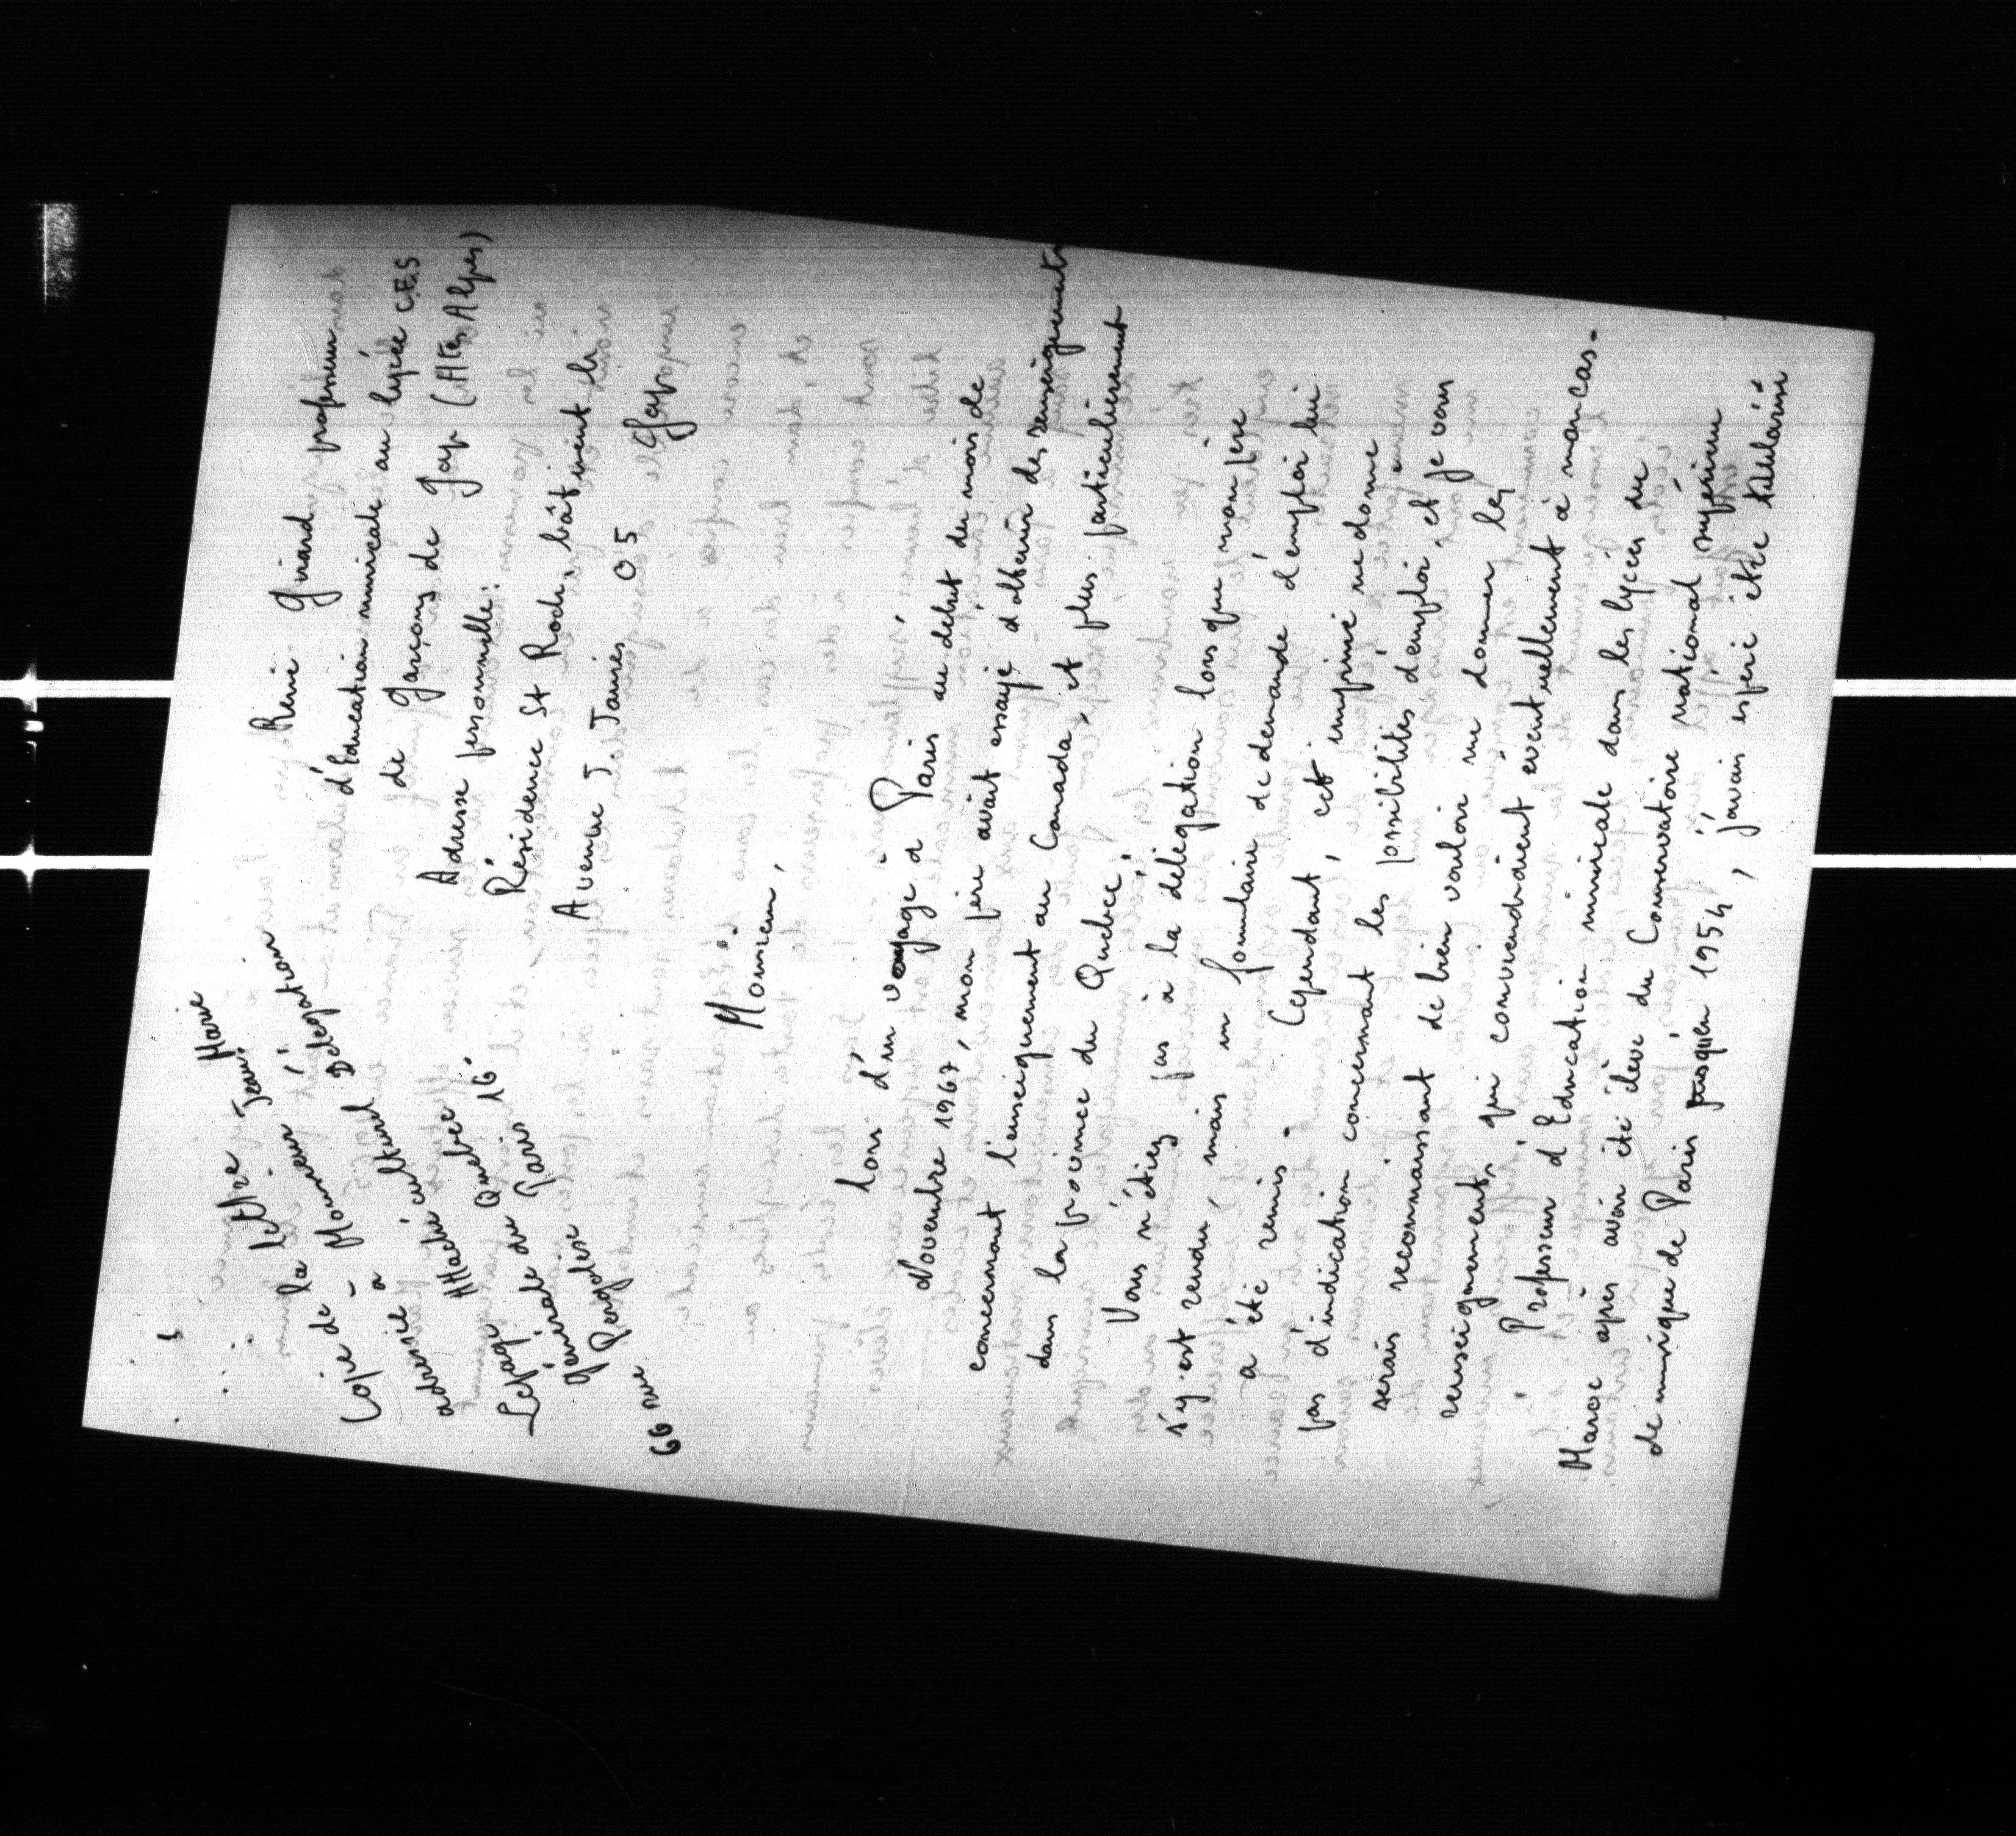 Copie de la lettre
adressée à Monsieur Jean Marie
Lepage Attaché culturel
Générale du Québec Délégation
66 rue Pergolèse Paris 16°
René Girard professeur
d'Education musicale au lycée C.E.S
de Garçons de Gap (Htes Alpes)
Adresse personnelle:
Résidence St Roch, bâtiment b
Avenue J. Jaurès 05 Gap
Monsieur,
Lors d'un voyage à Paris au début du mois de
Novembre 1967, mon père avait essayé d'obtenir des renseignements
concernant l'enseignement au Canada, et plus particulièrement
dans la province du Québec.
Vous n'étiez pas à la délégation lorsque mon père
s'y est rendu, mais un formulaire de demande d'emploi lui
a été remis. Cependant, cet imprimé ne donne
pas d'indication concernant les possibilités d'emploi, et je vous
serais reconnaissant de bien vouloir me donner les
renseignements qui conviendraient eventuellement à mon cas.
Professeur d'Education musicale dans les lycées du
Maroc après avoir été élève du Conservatoire national supérieur
de musique de Paris jusqu'en 1954, j'avais espéré être titularisé